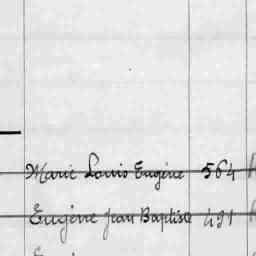 Marie Louis Eugène 564
Eugène Jean Baptiste 491